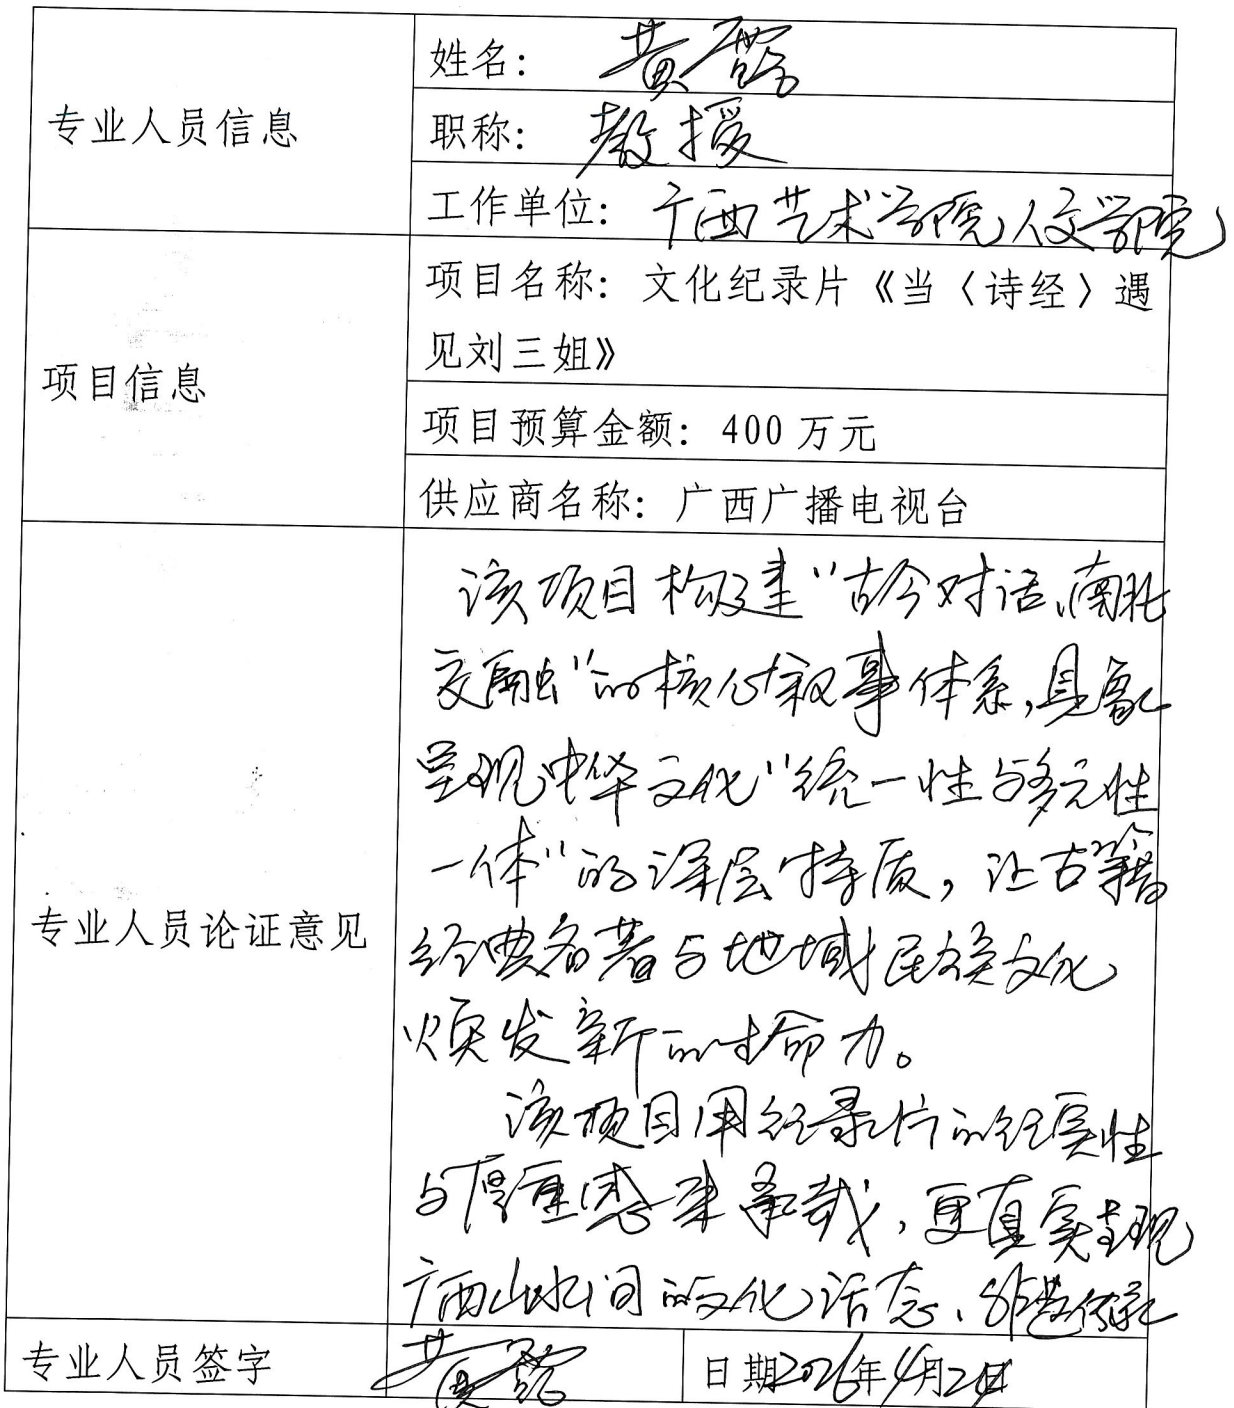 专业人员信息
姓名：黄
职称：教授
工作单位：广西艺术学院人文学院
项目信息
项目名称：文化纪录片《当〈诗经〉遇
见刘三姐》
项目预算金额：400 万元
供应商名称：广西广播电视台
专业人员论证意见
该项目构建“古今对话、南北
交融”的核心叙事体系，具象
呈现中华文化“统一性与多元性
一体”的深层特质，让古籍
经典名著与地域民族文化
焕发新的生命力。
该项目用纪录片的纪实性
与厚重感来承载，更真实呈现
广西山水间的文化活态、非遗传承
专业人员签字
黄
日期2026年4月2日